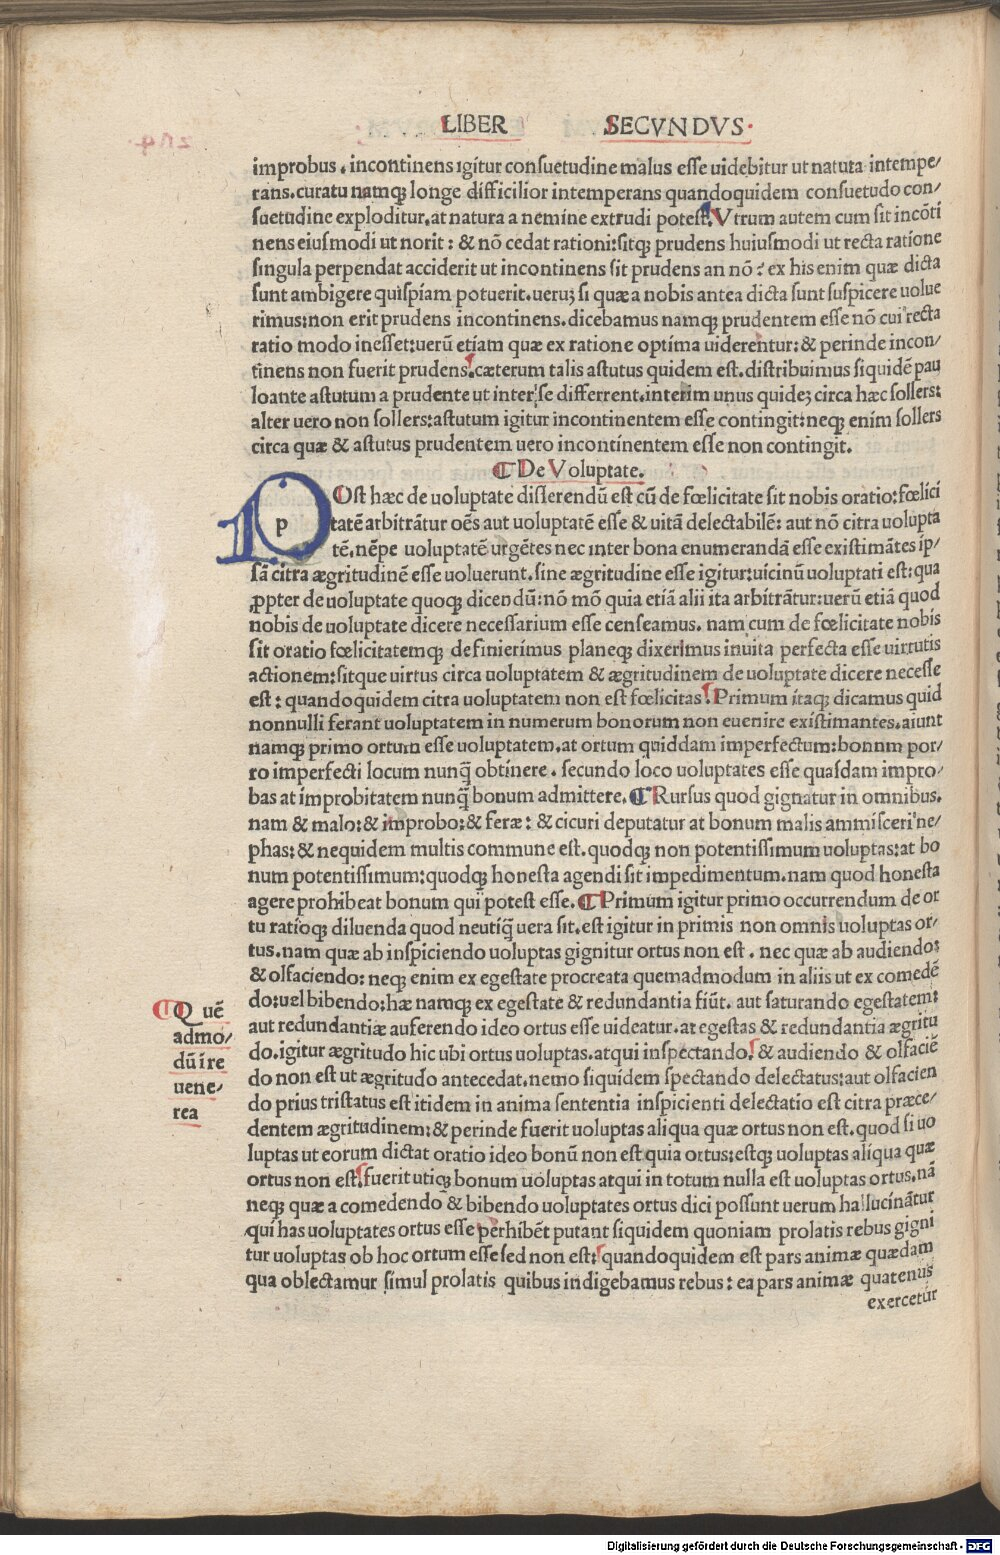 LIBER SECVNDVS.
improbus. incontinens igitur consuetudine malus esse uidebitur ut natura intempe/
rans. curatu namqꝫ longe difficilior intemperans quandoquidem consuetudo con/
suetudine exploditur. at natura a nemine extrudi potest. Vtrum autem cum sit incōti
nens eiusmodi ut norit: & nō cedat rationi: sitqꝫ prudens huiusmodi ut recta ratione
singula perpendat acciderit ut incontinens sit prudens an nō? ex his enim quæ dicta
sunt ambigere quispiam potuerit. ueruꝫ si quæ a nobis antea dicta sunt suspicere uolue
rimus: non erit prudens incontinens. dicebamus namqꝫ prudentem esse nō cui recta
ratio modo inesset: uerū etiam quæ ex ratione optima uiderentur: & perinde incon/
tinens non fuerit prudens. cæterum talis astutus quidem est. distribuimus siquidē pau
loante astutum a prudente ut inter se differrent. interim unus quideꝫ circa hæc sollers:
alter uero non sollers: astutum igitur incontinentem esse contingit: neqꝫ enim sollers
circa quæ & astutus prudentem uero incontinentem esse non contingit.
¶ De Voluptate.
p
POst hæc de uoluptate disserendū est cū de fœlicitate sit nobis oratio: fœlici
tatē arbitrātur oēs aut uoluptatē esse & uitā delectabilē: aut nō citra uolupta
tē. nēpe uoluptatē urgētes nec inter bona enumerandā esse existimātes ip/
sā citra ægritudinē esse uoluerunt. sine ægritudine esse igitur: uicinū uoluptati est: qua
ꝓpter de uoluptate quoqꝫ dicendū: nō mō quia etiā alii ita arbitrātur: uerū etiā quod
nobis de uoluptate dicere necessarium esse censeamus. nam cum de fœlicitate nobis
sit oratio fœlicitatemqꝫ definierimus planeqꝫ dixerimus in uita perfecta esse uirtutis
actionem: sitque uirtus circa uoluptatem & ægritudinem de uoluptate dicere necesse
est: quandoquidem citra uoluptatem non est fœlicitas. Primum itaqꝫ dicamus quid
nonnulli ferant uoluptatem in numerum bonorum non euenire existimantes. aiunt
namqꝫ primo ortum esse uoluptatem. at ortum quiddam imperfectum: bonnm por/
ro imperfecti locum nunq̄ obtinere. secundo loco uoluptates esse quasdam impro/
bas at improbitatem nunq̄ bonum admittere. ¶ Rursus quod gignatur in omnibus.
nam & malo: & improbo: & feræ: & cicuri deputatur at bonum malis ammisceri ne/
phas: & nequidem multis commune est. quodqꝫ non potentissimum uoluptas: at bo
num potentissimum: quodqꝫ honesta agendi sit impedimentum. nam quod honesta
agere prohibeat bonum qui potest esse. ¶ Primum igitur primo occurrendum de or
tu ratioqꝫ diluenda quod neutiq̄ uera sit. est igitur in primis non omnis uoluptas or/
tus. nam quæ ab inspiciendo uoluptas gignitur ortus non est. nec quæ ab audiendo:
& olfaciendo: neqꝫ enim ex egestate procreata quemadmodum in aliis ut ex comedē
do: uel bibendo: hæ namqꝫ ex egestate & redundantia fiūt. aut saturando egestatem:
aut redundantiæ auferendo ideo ortus esse uideatur. at egestas & redundantia ægritu
do. igitur ægritudo hic ubi ortus uoluptas. atqui inspectando: & audiendo & olfaciē
do non est ut ægritudo antecedat. nemo siquidem spectando delectatus: aut olfacien
do prius tristatus est itidem in anima sententia inspicienti delectatio est citra præce/
dentem ægritudinem: & perinde fuerit uoluptas aliqua quæ ortus non est. quod si uo
luptas ut eorum dictat oratio ideo bonū non est quia ortus: estqꝫ uoluptas aliqua quæ
ortus non est: fuerit utiqꝫ bonum uoluptas atqui in totum nulla est uoluptas ortus. nā
neqꝫ quæ a comedendo & bibendo uoluptates ortus dici possunt uerum hallucinātur
qui has uoluptates ortus esse perhibēt putant siquidem quoniam prolatis rebus gigni
tur uoluptas ob hoc ortum esse sed non est: quandoquidem est pars animæ quædam
qua oblectamur simul prolatis quibus indigebamus rebus: ea pars animæ quatenus
exercetur
¶ Quē
admo/
dū i re
uene/
rea
Digitalisierung gefördert durch die Deutsche Forschungsgemeinschaft - DFG